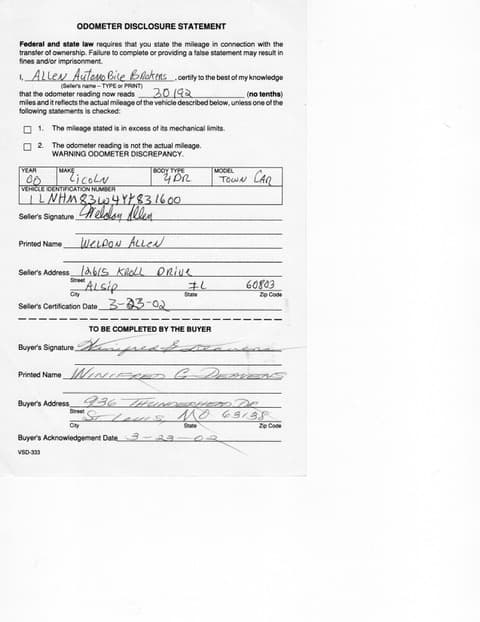 ODOMETER DISCLOSURE STATEMENT
Federal and state law requires that you state the mileage in connection with the
transfer of ownership. Failure to complete or providing a false statement may result in
fines and/or imprisonment.
I, Allen Automobile Brokers, certify to the best of my knowledge
(Seller's name – TYPE or PRINT)
that the odometer reading now reads 30192 (no tenths)
miles and it reflects the actual mileage of the vehicle described below, unless one of the
following statements is checked:
1. The mileage stated is in excess of its mechanical limits.
2. The odometer reading is not the actual mileage.
WARNING ODOMETER DISCREPANCY.
YEAR MAKE BODY TYPE MODEL
00 Licoln 4DR Town Car
VEHICLE IDENTIFICATION NUMBER
1LNHM83W4YY831600
Seller's Signature Weldon Allen
Printed Name Weldon Allen
Seller's Address 12615 Kroll Drive
Street
Alsip IL 60803
City State Zip Code
Seller's Certification Date 3-23-02
TO BE COMPLETED BY THE BUYER
Buyer's Signature
Printed Name Winifred G Deavens
Buyer's Address 936 Thunderhead Dr
Street
St Louis, MO 63138
City State Zip Code
Buyer's Acknowledgement Date 3-23-02
VSD-333